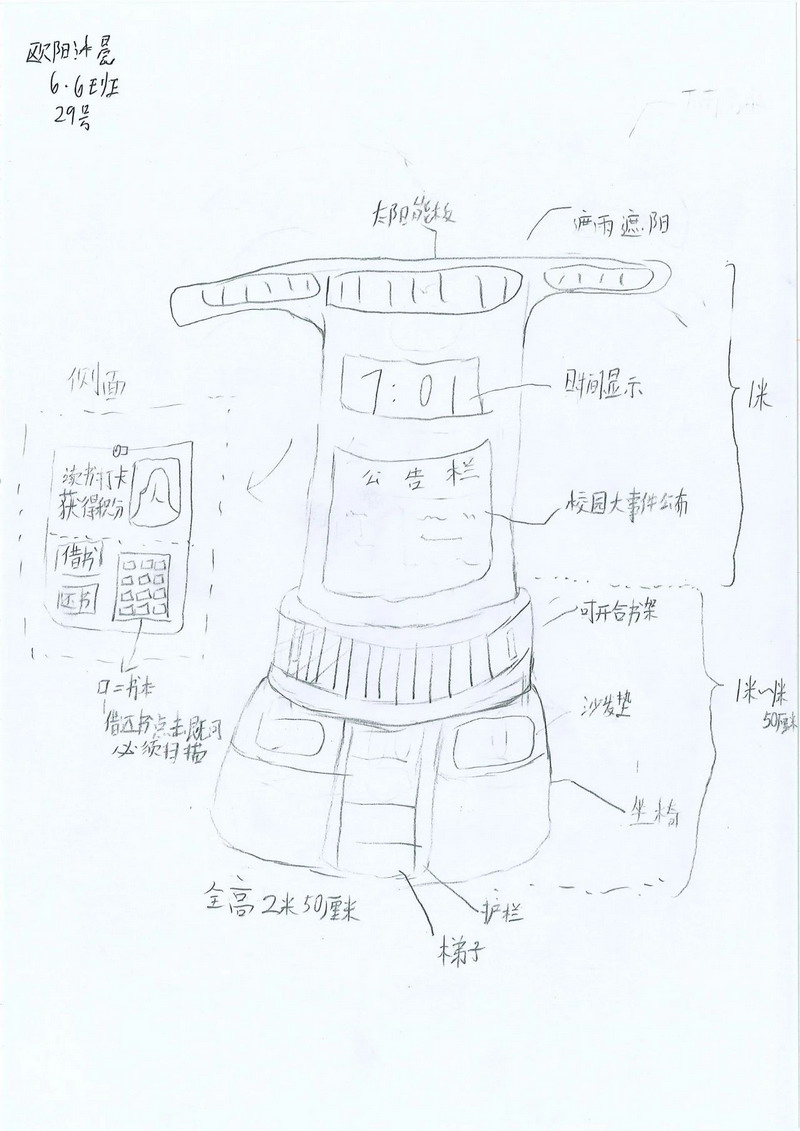 欧阳沐晨
6.6班
29号
太阳能板
遮雨遮阳
1米
侧面
7:01
时间显示
公告栏
校园大事件公布
读书打卡
获得积分
借书
还书
可开合书架
1米~1米
50厘米
口=书本
借还书点击既可
必须扫描
沙发垫
坐椅
全高2米50厘米
护栏
梯子